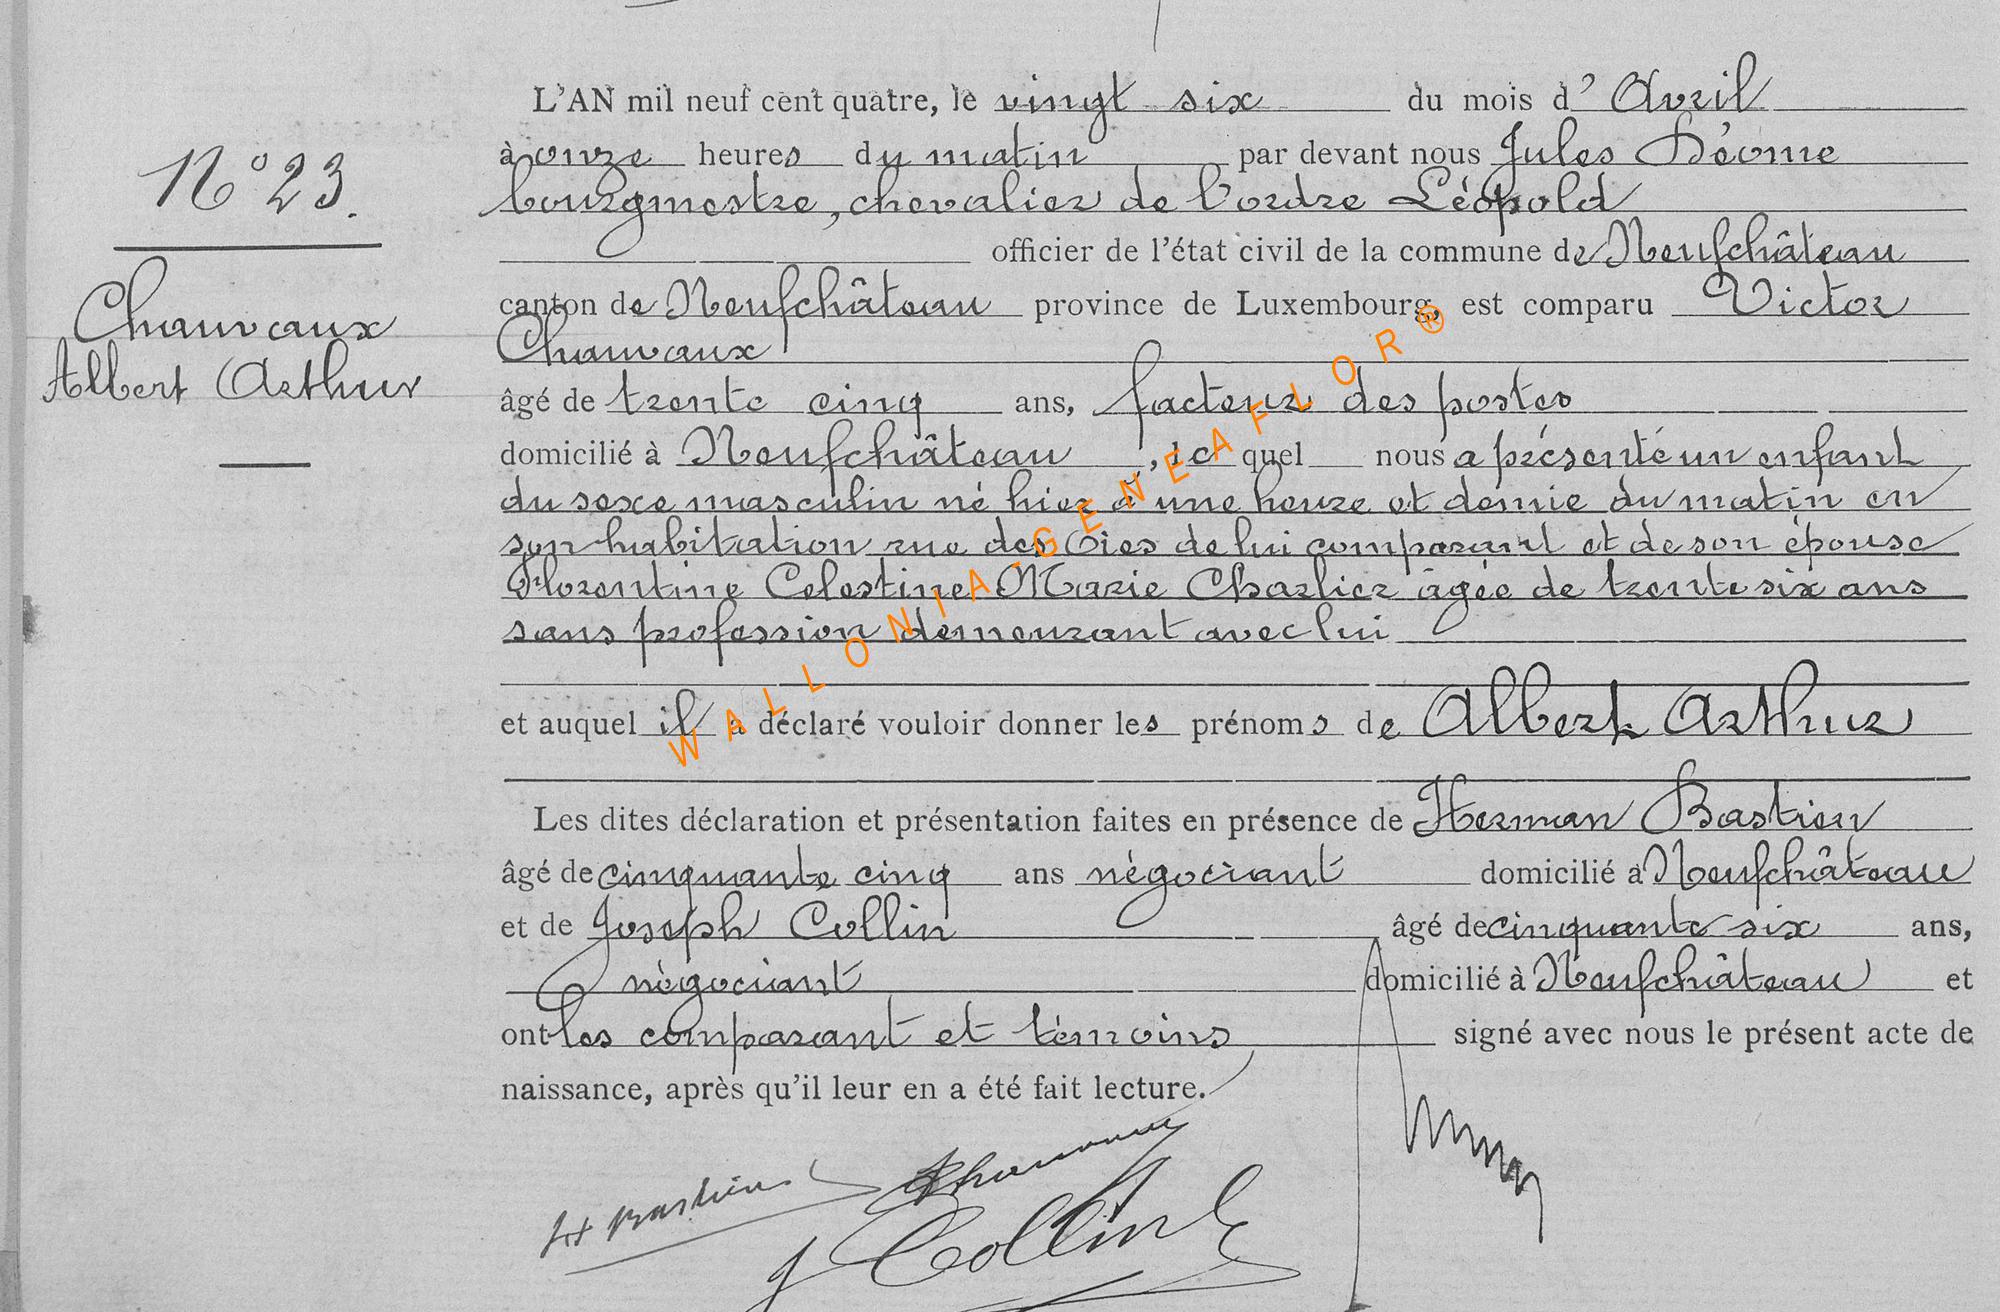 N° 23.
Chauvaux
Albert Arthur
L'AN mil neuf cent quatre, le vingt six du mois d'Avril
à onze heures du matin par devant nous Jules Déome
bourgmestre, chevalier de l'ordre Léopold
officier de l'état civil de la commune de Neufchâteau
canton de Neufchâteau province de Luxembourg, est comparu Victor
Chauvaux
âgé de trente cinq ans, facteur des postes
domicilié à Neufchâteau, lequel nous a présenté un enfant
du sexe masculin né hier à une heure et demie du matin en
son habitation rue des Oies de lui comparant et de son épouse
Florentine Celestine Marie Charlier âgée de trente six ans
sans profession demeurant avec lui
et auquel il a déclaré vouloir donner les prénoms de Albert Arthur
Les dites déclaration et présentation faites en présence de Herman Bastien
âgé de cinquante cinq ans négociant domicilié à Neufchâteau
et de Joseph Collin âgé de cinquante six ans,
négociant domicilié à Neufchâteau et
ont les comparant et témoins signé avec nous le présent acte de
naissance, après qu'il leur en a été fait lecture.
H Bastien
J Collin
WALLONIA-GENEAFLOR®